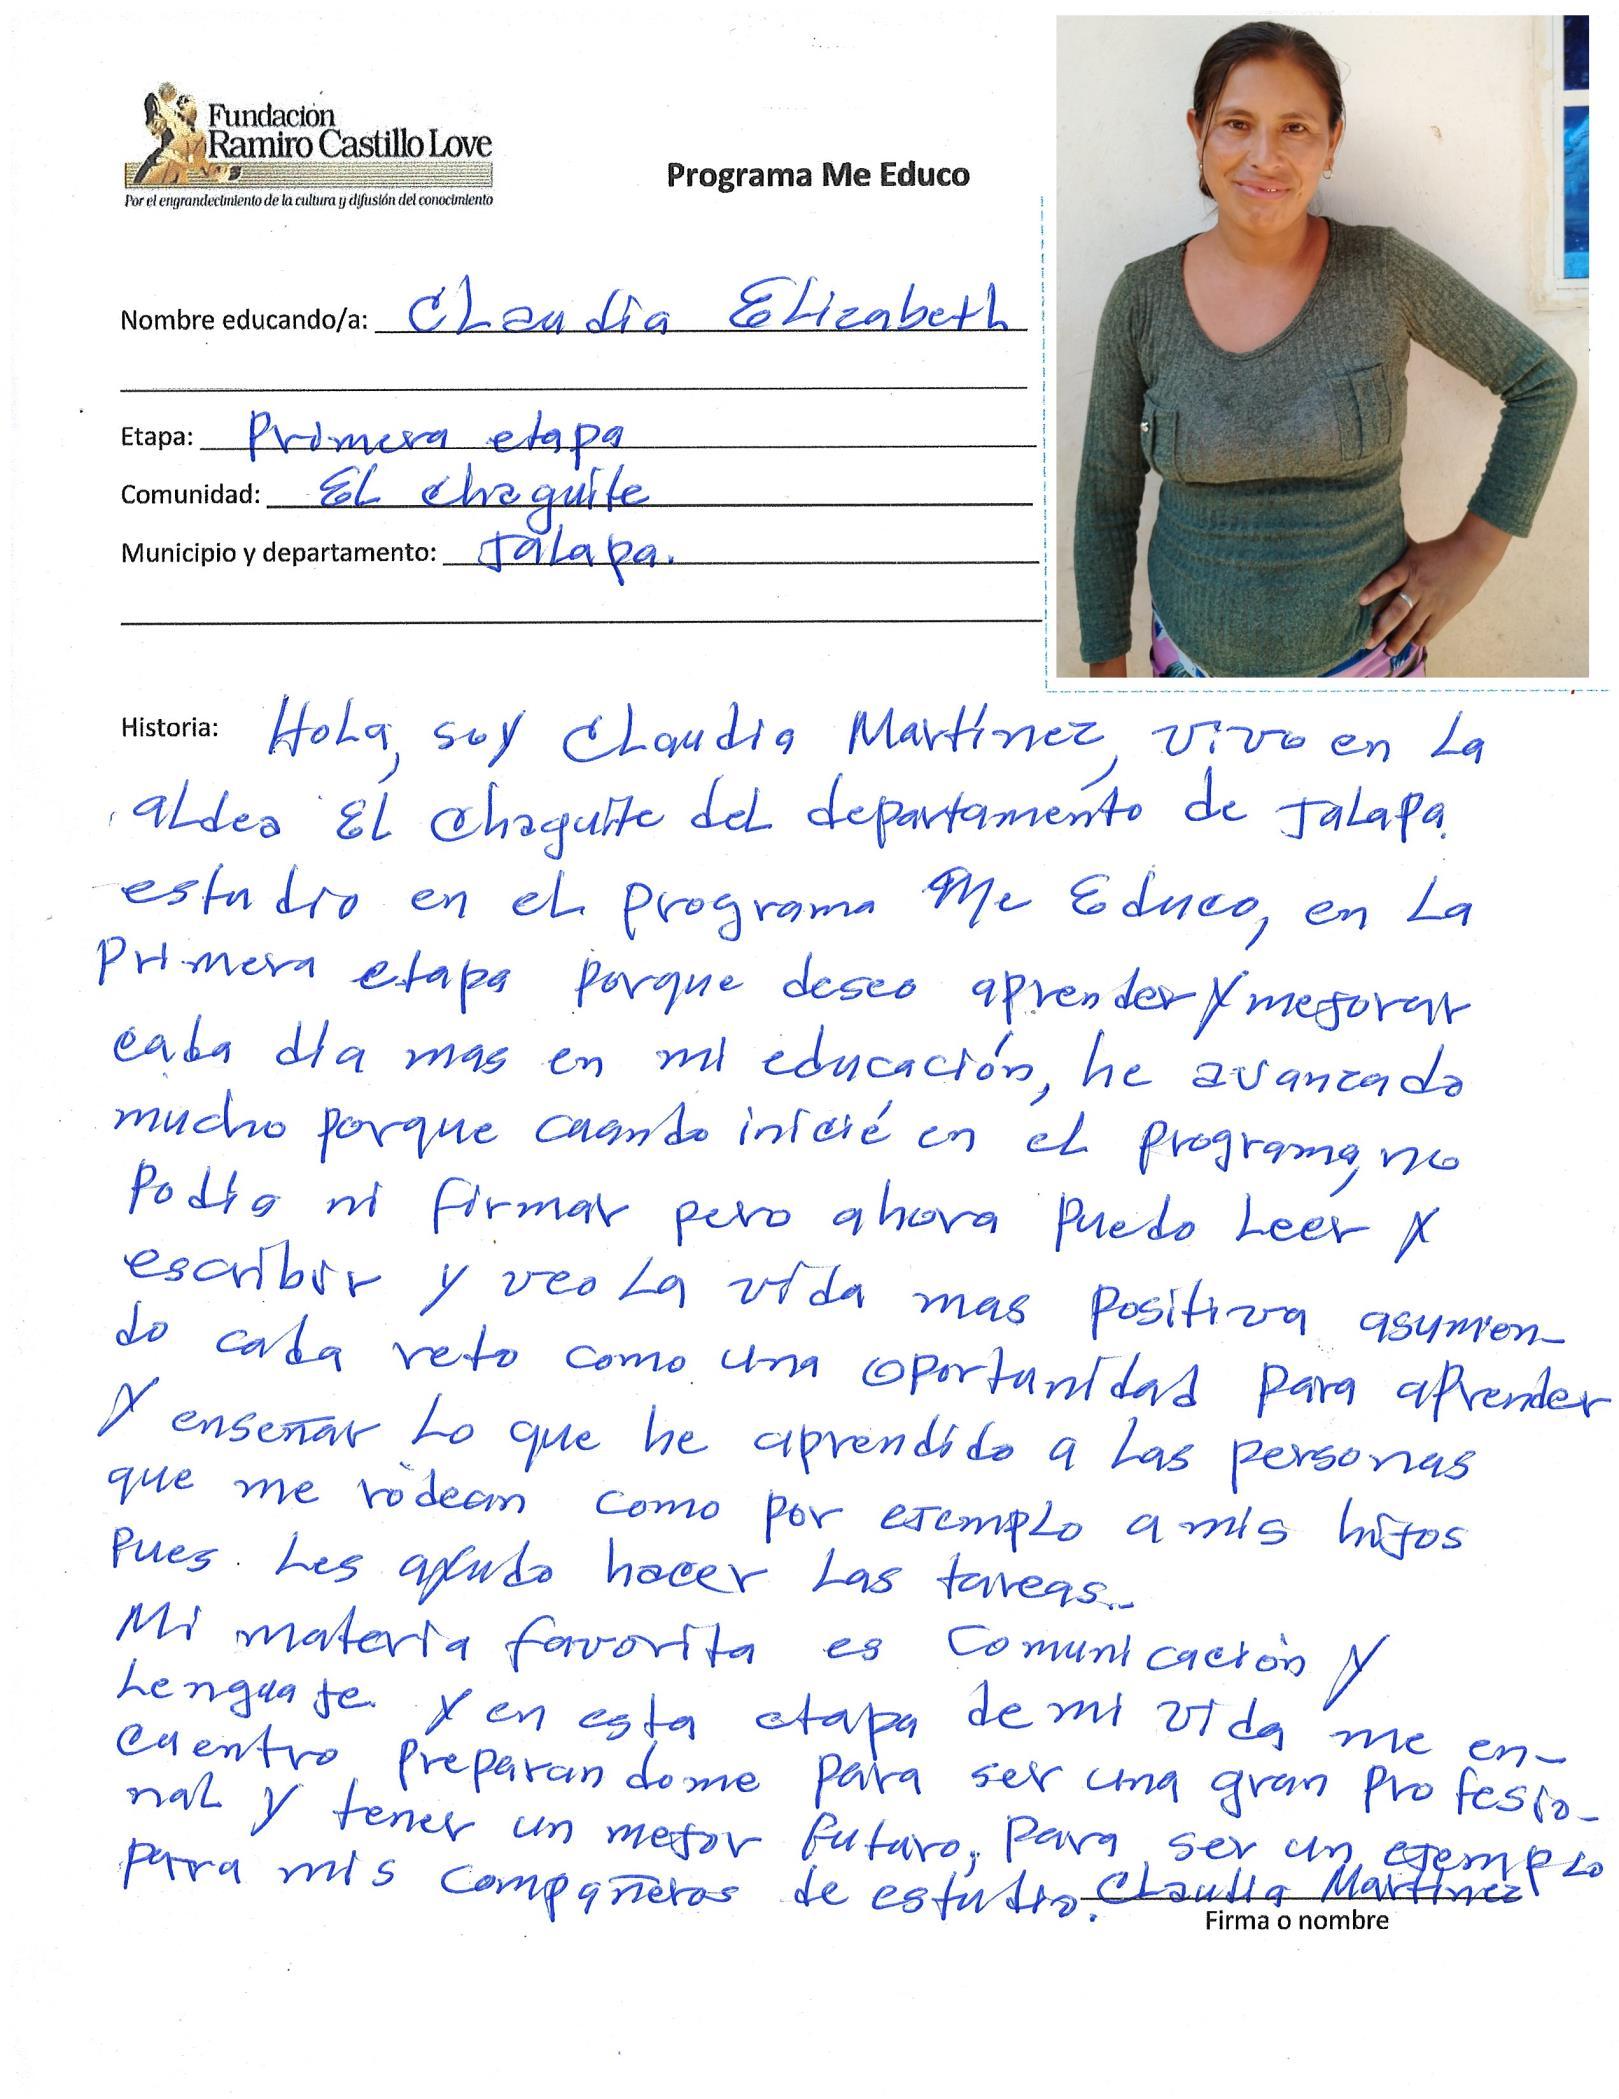 Fundación
Ramiro Castillo Love
Por el engrandecimiento de la cultura y difusión del conocimiento
Programa Me Educo
Nombre educando/a: Claudia Elizabeth
Etapa: Primera etapa
Comunidad: El Chaguite
Municipio y departamento: Jalapa.
Historia: Hola, soy Claudia Martínez, vivo en la
aldea El Chaguite del departamento de Jalapa.
estudio en el programa Me Educo, en la
Primera etapa porque deseo aprender y mejorar
cada día mas en mi educación, he avanzado
mucho porque cuando inicié en el programa, no
Podía ni firmar pero ahora Puedo Leer y
escribir y veo la vida mas Positiva asumien-
do cada reto como una oportunidad para aprender
y enseñar lo que he aprendido a las personas
que me rodean como por ejemplo a mis hijos
pues les ayudo hacer las tareas..
Mi materia favorita es Comunicación y
Lenguaje y en esta etapa de mi vida me en-
cuentro preparandome para ser una gran profesio-
nal y tener un mejor futuro, para ser un ejemplo
para mis compañeros de estudio. Claudia Martínez
Firma o nombre